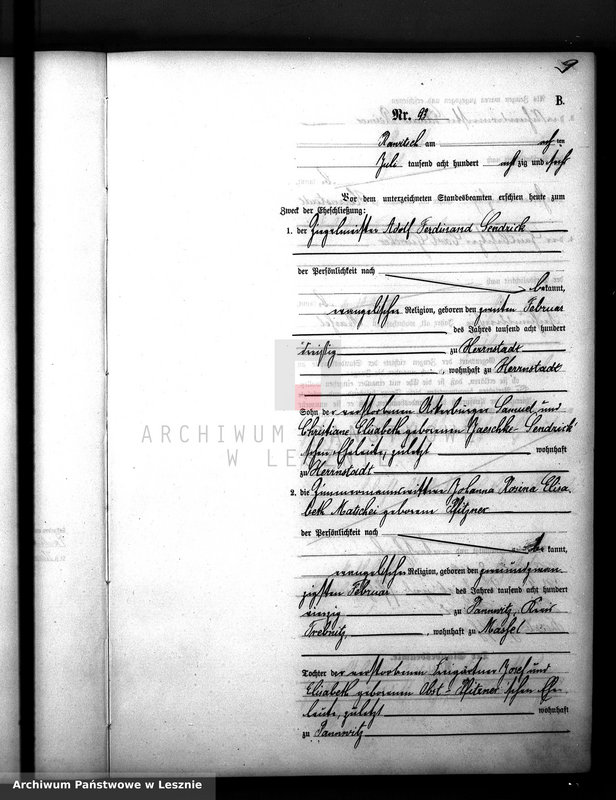 9
B.
Nr. 93
Rawitsch am achten
Juli tausend acht hundert achtzig und sechs
Vor dem unterzeichneten Standesbeamten erschien heute zum
Zweck der Eheschließung:
1. der Ziegelmeister Adolf Ferdinand Sendrick
der Persönlichkeit nach
bekannt,
evangelischer Religion, geboren den zweiten Februar
des Jahres tausend acht hundert
dreißig zu Herrnstadt
, wohnhaft zu Herrnstadt
Sohn der verstorbenen Ackerbürger Samuel und
Christiane Elisabeth geborenen Jaeschke-Sendrick'
schen Eheleute, zuletzt wohnhaft
ARCHIWUM
W LESZNIE
zu Herrnstadt
2. die Zimmermannswittwe Johanna Rosina Elisa-
beth geborene Pitzner
der Persönlichkeit nach
kannt,
evangelischer Religion, geboren den zweiundzwan-
zigsten Februar des Jahres tausend acht hundert
vierzig zu Pannwitz, Kreis
Trebnitz, wohnhaft zu Massel
Tochter der verstorbenen Josef und
Elisabeth geborenen Obst-Pitzner'schen Ehe-
leute, zuletzt wohnhaft
zu Pannwitz
Archiwum Państwowe w Lesznie